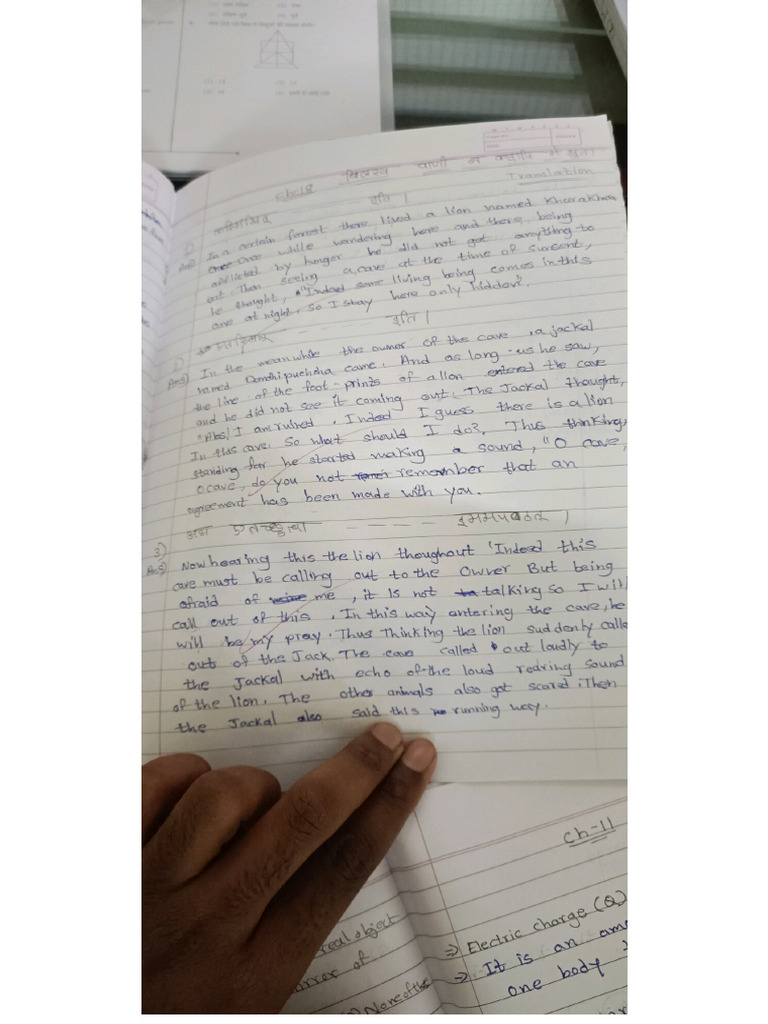 Ch-18 बिलस्य वाणी न कदापि मे श्रुता
Translation
1) कस्मिंश्चित् इति ।
Ans) In a certain forest there lived a lion named Kharakhara
Once while wandering here and there, being
afflicted by hunger he did not get anything to
eat. Then seeing a cave at the time of sunset,
he thought, "Indeed some living being comes in this
cave at night, so I stay here only hidden".
इति ।
Ans) In the meanwhile the owner of the cave, a jackal
named Damdhipuchcha came. And as long us he saw,
the line of the foot-prints of a lion entered the cave
and he did not see it coming out. The Jackal thought,
"Alas! I am ruined. Indeed I guess there is a lion
In this cave. So what should I do?, Thus thinking,
standing far he started making a sound, "O cave,
O cave, do you not remember that an
agreement has been made with you.
3)
Ans) Now hearing this the lion thoughout 'Indeed this
cave must be calling out to the Owner But being
afraid of me, it is not talking so I will
call out of this. In this way entering the cave, he
will be my pray. Thus Thinking the lion suddenly calle
out of the Jack. The cave called out loudly to
the Jackal with echo of the loud redring sound
of the lion. The other animals also got scared. Then
the Jackal also said this running way.
Ch-11
real object
⇒ Electric charge (Q)
irror of
⇒ It is an am
None of the
one body